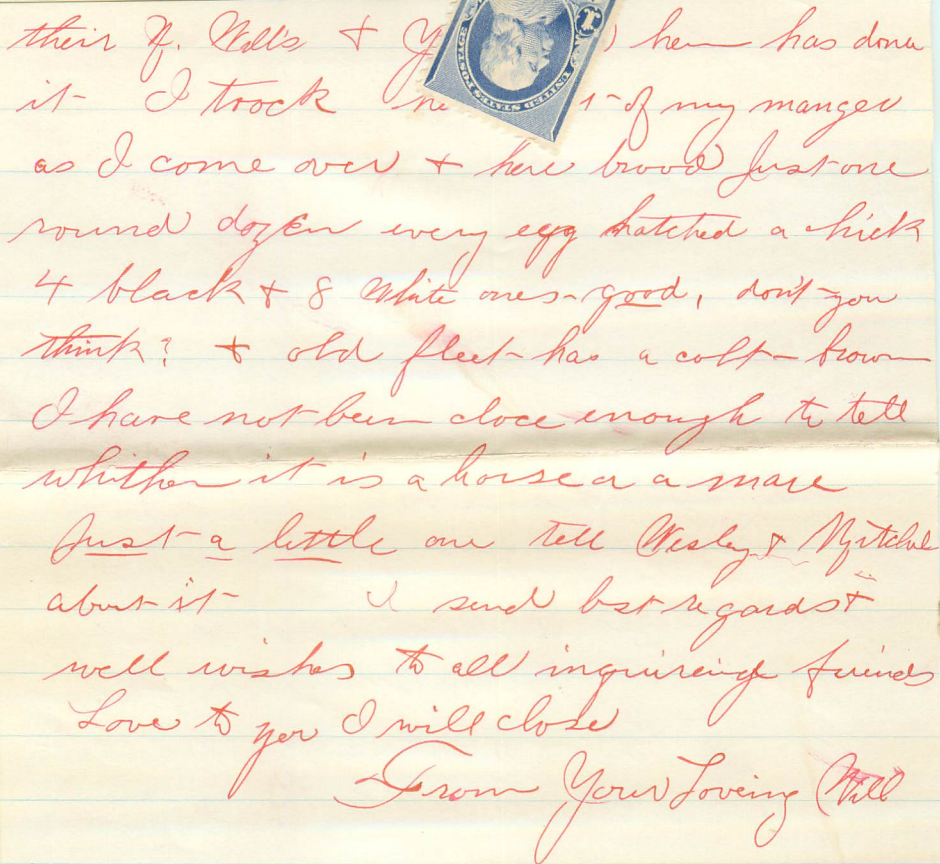 their H. Will's & Y ) hen has done
it I trock ne t of my manger
as I come over & here brood Just one
round dozen every egg hatched a chick
4 black & 8 White ones - good, don't you
think? & old fleet has a colt - brown
I have not been cloce enough to tell
whither it is a horse or a mare
Just a little one tell Wesley & Mitchel
about it I send bst regards &
well wishes to all inquireing friends
Love to yer I will close
From Your Loveing Will
POSTAGE
UNITED STATES
1